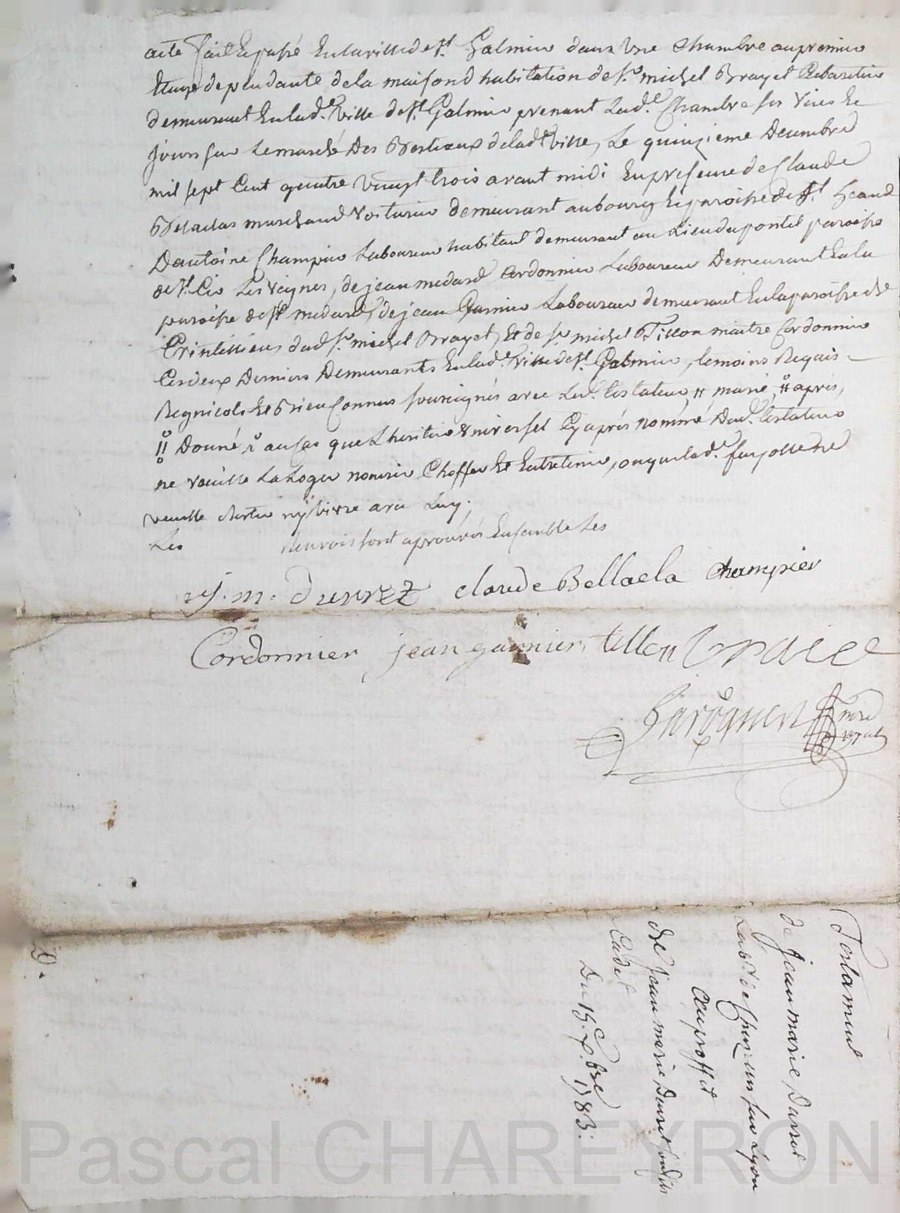 acte fait et passé En la ville de st. Galmier dans Une chambre au premier
Etage dependante de la maison d habitation de sr. michel Brayet Cabaretier
demeurant En lad. ville de st. Galmier prenant Lad. Chambre ses Vües Et
jours sur Le marché Des Bestiaux de lad. ville, Le quinzieme Decembre
mil sept Cent quatre Vingt trois avant midi En presence de Claude
marchand Voiturier demeurant au bourg Et paroisse de st.
D antoine Champier Laboureur habitant demeurant au Lieu du paroisse
de st. Cir Les Vignes, de jean medard Cordonnier Laboureur Demeurant En la
paroisse de st. medard, de jean Garnier Laboureur demeurant En la paroisse de
dud. sr. michel Brayet, Et de sr. michel Tillon maitre Cordonnier
Ces deux Derniers Demeurants En lad. Ville de st. Galmier, temoins Requis
Regnicoles Et Bien Connus soussignés avec Led. testateur // marié, // après,
// Donné // au Cas que L heritier Universel Cy après nommé Dud. testateur
ne Veuille La Loger nourrir Choffer Et Entretenir, ou que lad. ne
veuille Rester ny Vivre avec Luy,
Les Renvois sont aprouvés Ensemble Les
j. m. Durrez claude Bellacla champier
Cordonnier jean garnier tillon Braiee
nore
royal
Testament
de jean marie Durret
Lab. de sur Lyon
au proffit
de jean marie Durret son fils
Cadet
Du 15 Xbre 1783.
Pascal CHAREYRON